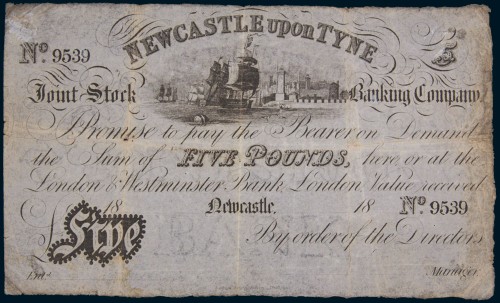 NEWCASTLE upon TYNE
No 9539
£5
Joint Stock Banking Company
I Promise to pay the Bearer on Demand
the Sum of FIVE POUNDS, here, or at the
London & Westminster Bank, London, Value received
18 Newcastle, 18 No 9539
£ Five By order of the Directors
Entd Manager